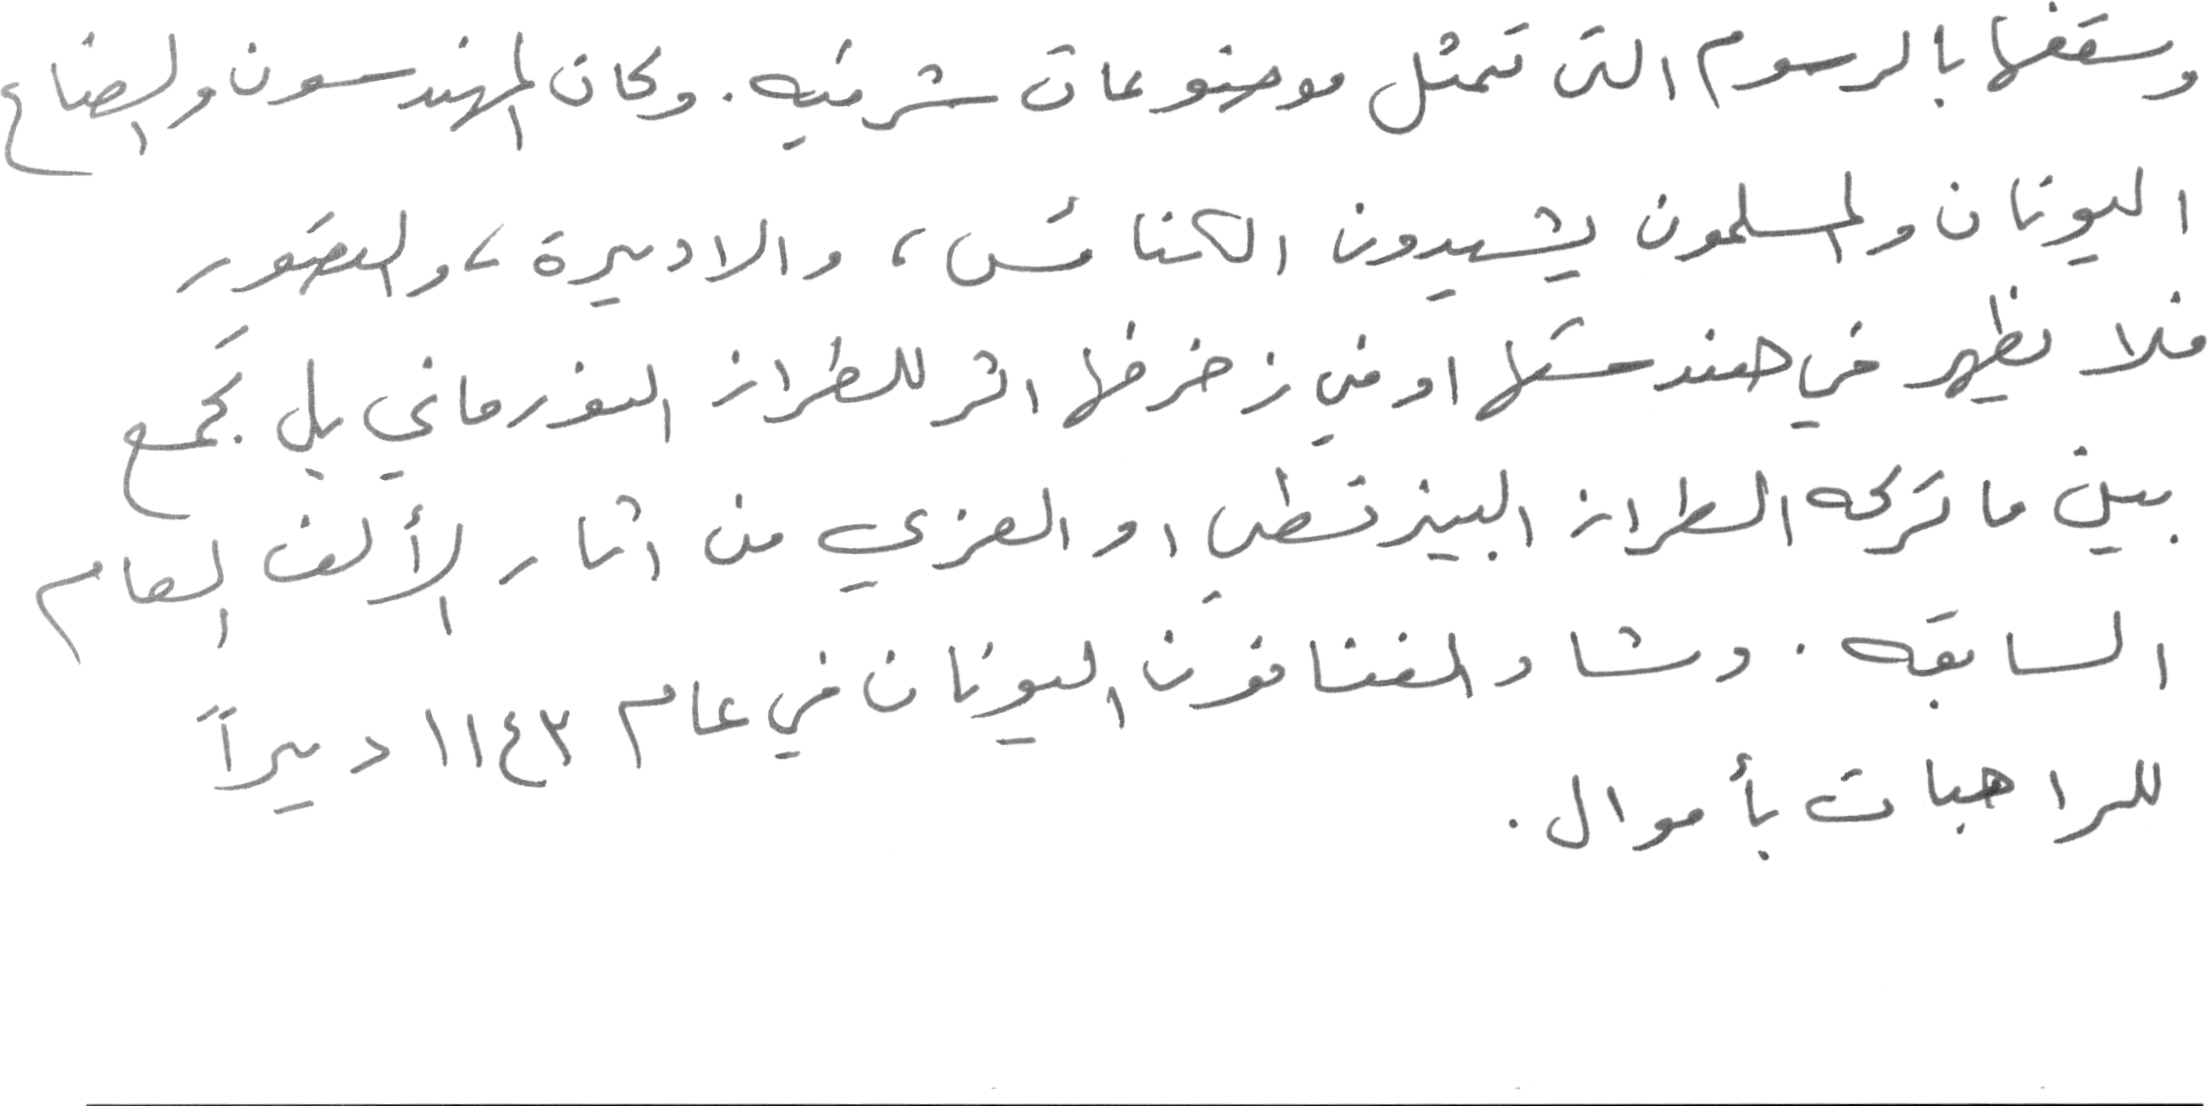 وسقفها بالرسوم التى تمثل موضوعات شرقيه. وكان المهندسون والصناع
اليونان والمسلمون يشيدون الكنائس، والاديرة، والقصور
فلا يظهر في هندستها او في زخرفها اثر للطراز النورماني بل يجمع
بين ما تركه الطراز البيزنطي او العزي من اثار الألف العام
السابقه. وشاد الفنانون اليونان في عام ١١٤٣ ديراً
للراهبات بأموال.